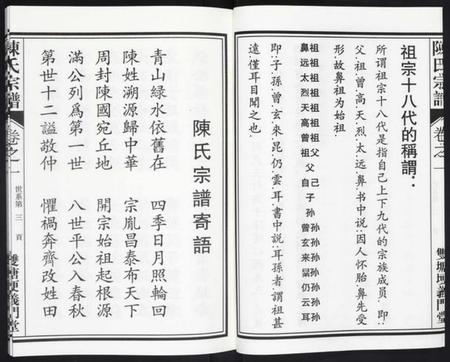 陳氏宗譜
卷之一
雙塘埂義門堂
祖宗十八代的稱謂：
所謂祖宗十八代是指自己上下九代的宗族成員．即：
父．祖．曾．高．天．烈．太．遠．鼻．書中説：因人懷胎．鼻先受
形．故鼻祖爲始祖．
祖祖祖祖祖祖祖父 自 孫孫孫孫孫孫孫
鼻遠太烈天高曾祖父己子孫曾玄來晜仍云耳
即：子．孫．曾．玄．來．昆．仍．雲．耳．書中説：耳孫者：謂祖甚
遠．僅耳目聞之也．
陳氏宗譜寄語
青山綠水依舊在 四季日月照輪回
陳姓溯源歸中華 宗胤昌泰布天下
周封陳國宛丘地 開宗始祖起根源
滿公列爲第一世 八世平公入春秋
第世十二謚敬仲 懼禍奔齊改姓田
陳氏宗譜
卷之一
世系第 三 頁
雙塘埂義門堂